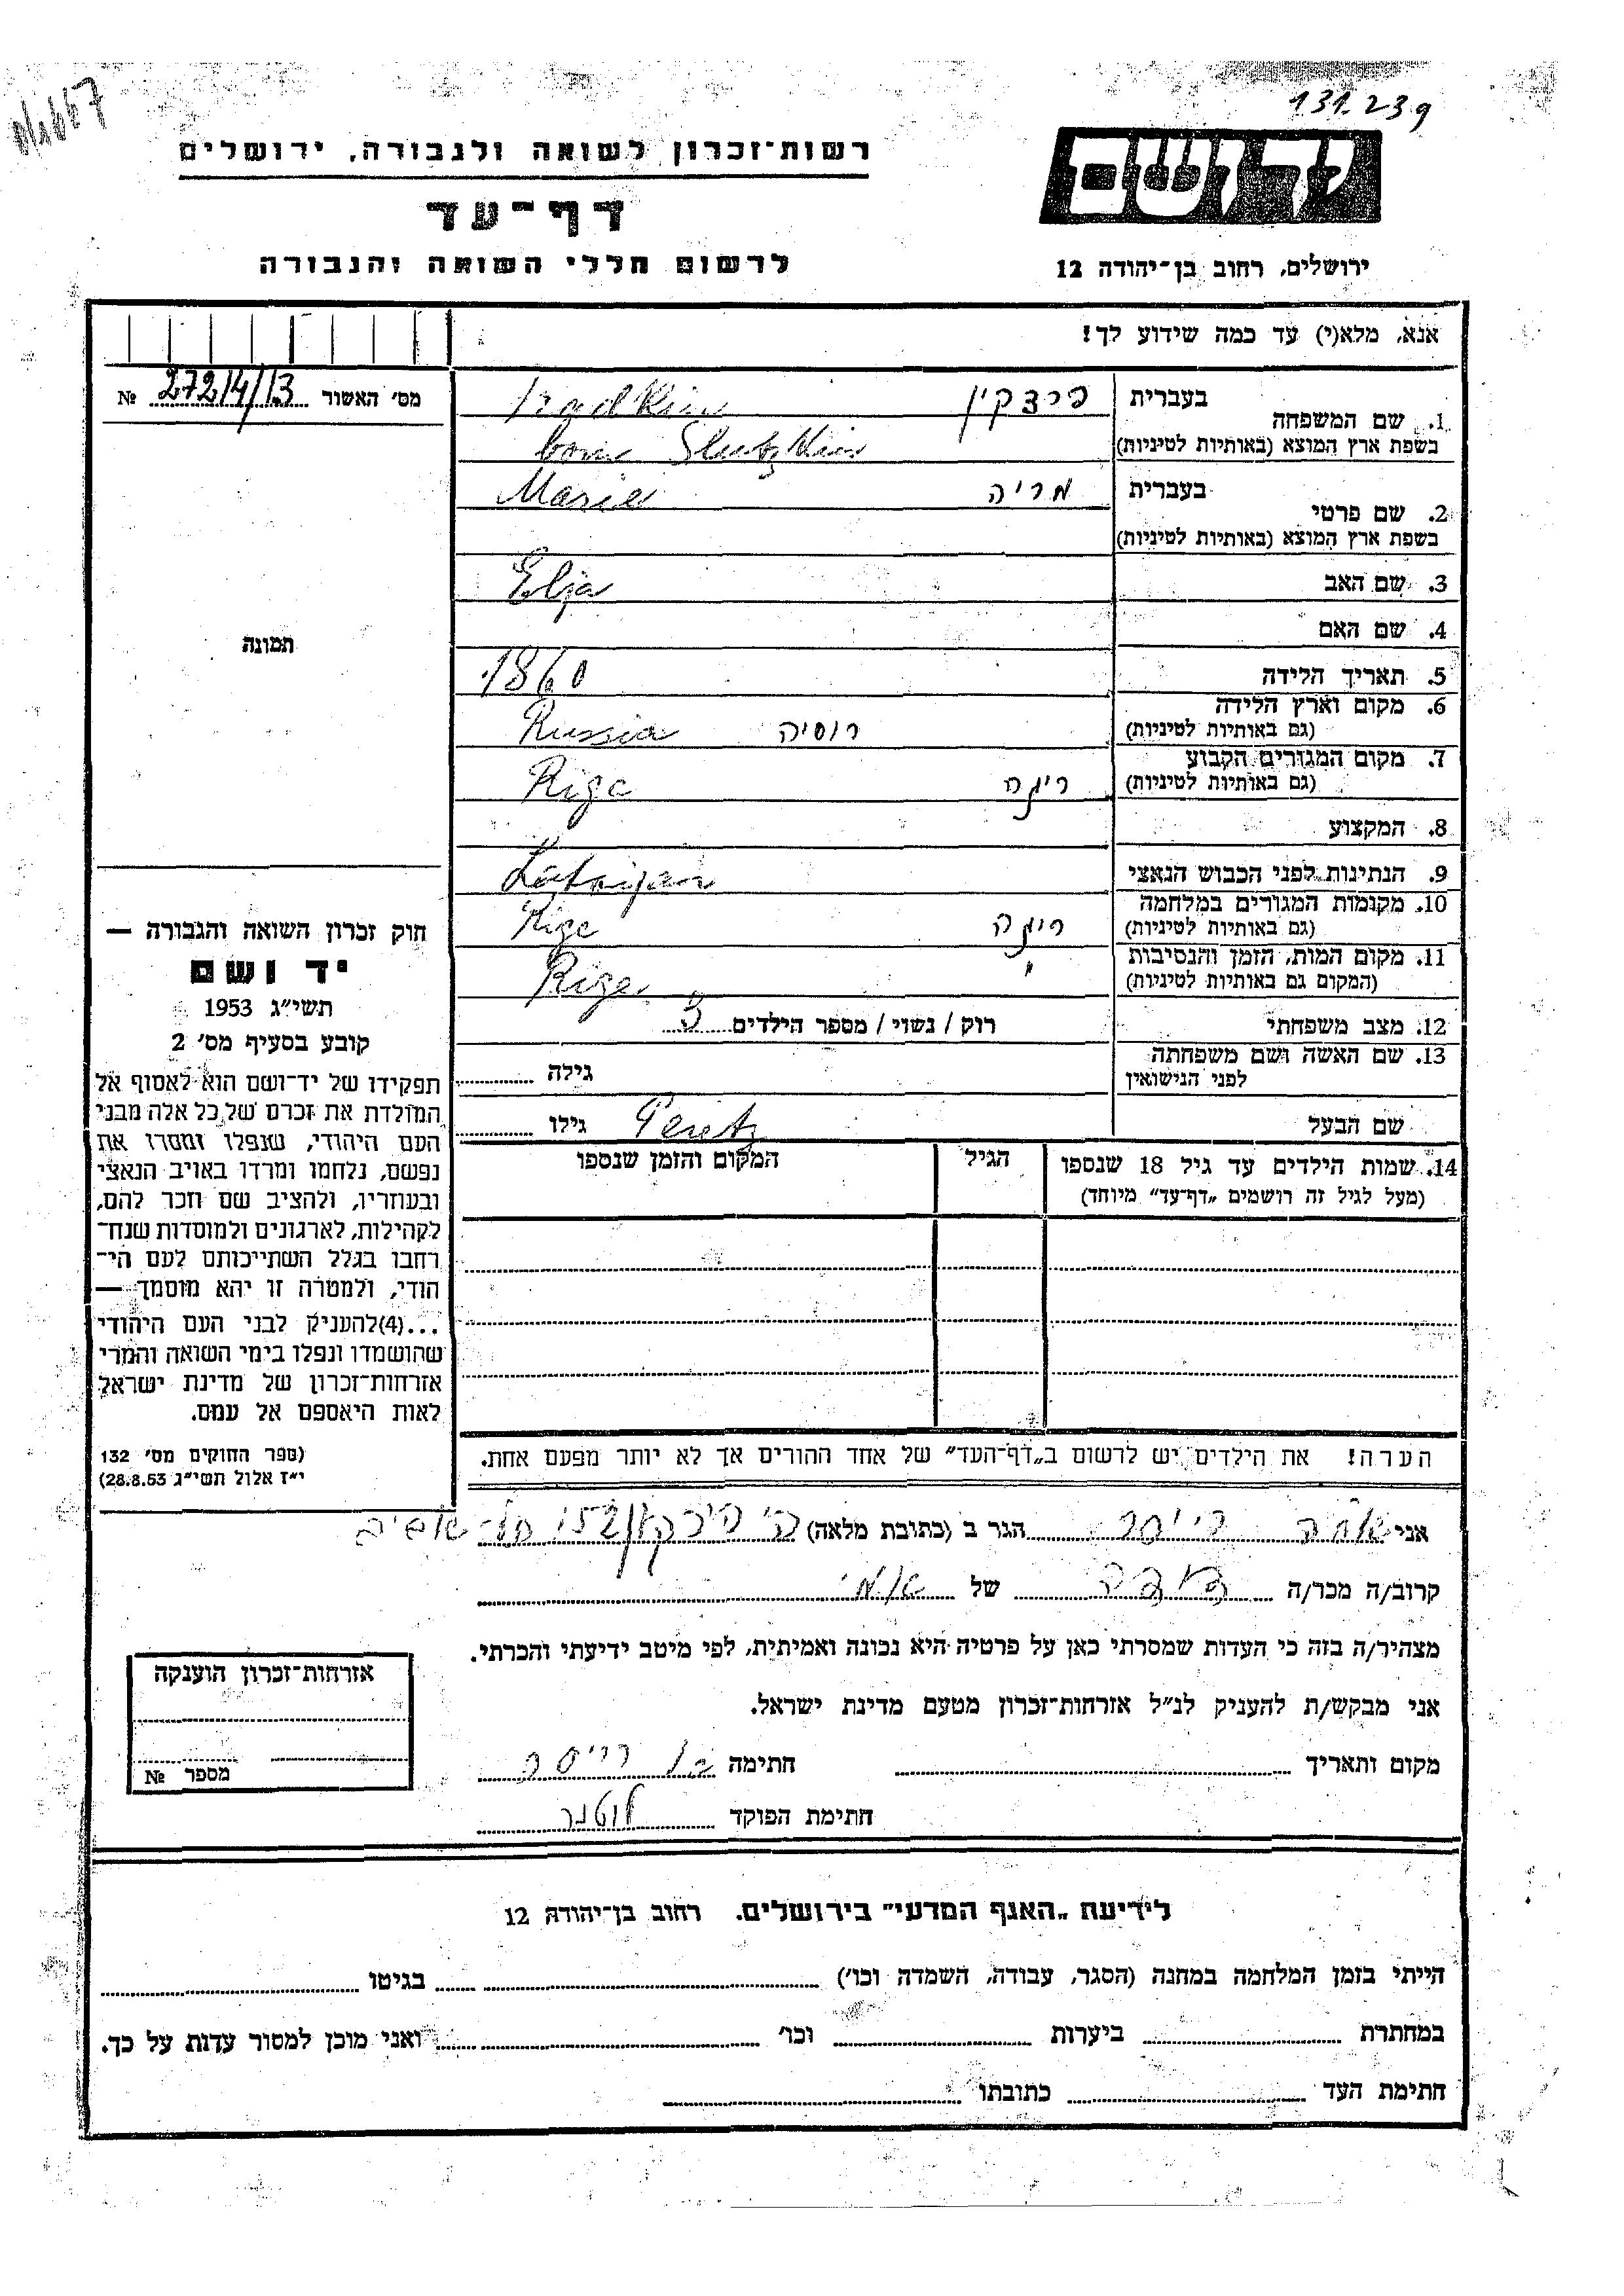 131.239
רשות-זכרון לשואה ולגבורה, ירושלים
ידושם
דף-עד
לרשום חללי השואה והגבורה
ירושלים, רחוב בן-יהודה 12
אנא, מלא(י) עד כמה שידוע לך!
מס׳ האשור 272/4/13 №
1. שם המשפחה בעברית
בשפת ארץ המוצא (באותיות לטיניות)
born Slutzkin
2. שם פרטי בעברית מריה Marie
בשפת ארץ המוצא (באותיות לטיניות)
3. שם האב Elja
4. שם האם
5. תאריך הלידה 1860
6. מקום וארץ הלידה רוסיה Russia
(גם באותיות לטיניות)
7. מקום המגורים הקבוע ריגה Riga
(גם באותיות לטיניות)
8. המקצוע
9. הנתינות לפני הכבוש הנאצי
10. מקומות המגורים במלחמה ריגה Riga
(גם באותיות לטיניות)
11. מקום המות, הזמן והנסיבות Riga
(המקום גם באותיות לטיניות)
12. מצב משפחתי רוק / נשוי / מספר הילדים
13. שם האשה ושם משפחתה
לפני הנישואין גילה
שם הבעל Peretz גילו
14. שמות הילדים עד גיל 18 שנספו הגיל המקום והזמן שנספו
(מעל לגיל זה רושמים „דף-עד״ מיוחד)
הערה! את הילדים יש לרשום ב„דף-העד״ של אחד ההורים אך לא יותר מפעם אחת.
תמונה
חוק זכרון השואה והגבורה —
יד ושם
תשי״ג 1953
קובע בסעיף מס׳ 2
תפקידו של יד-ושם הוא לאסוף אל
המולדת את זכרם של כל אלה מבני
העם היהודי, שנפלו ומסרו את
נפשם, נלחמו ומרדו באויב הנאצי
ובעוזריו, ולהציב שם וזכר להם,
לקהילות, לארגונים ולמוסדות שנח-
רחבו בגלל השתייכותם לעם הי-
הודי, ולמטרה זו יהא מוסמך —
...(4)להעניק לבני העם היהודי
שהושמדו ונפלו בימי השואה והמרי
אזרחות-זכרון של מדינת ישראל
לאות היאספם אל עמם.
(ספר החוקים מס׳ 132
י״ז אלול תשי״ג 28.8.53)
אני הגר ב (כתובת מלאה) תל-אביב
קרוב/ה מכר/ה של
מצהיר/ה בזה כי העדות שמסרתי כאן על פרטיה היא נכונה ואמיתית, לפי מיטב ידיעתי והכרתי.
אני מבקש/ת להעניק לנ״ל אזרחות-זכרון מטעם מדינת ישראל.
מקום ותאריך חתימה
חתימת הפוקד
אזרחות-זכרון הוענקה
מספר №
לידיעת „האגף המדעי״ בירושלים. רחוב בן-יהודה 12
הייתי בזמן המלחמה במחנה (הסגר, עבודה, השמדה וכו׳) בגיטו
במחתרת ביערות וכו׳ ואני מוכן למסור עדות על כך.
חתימת העד כתובתו